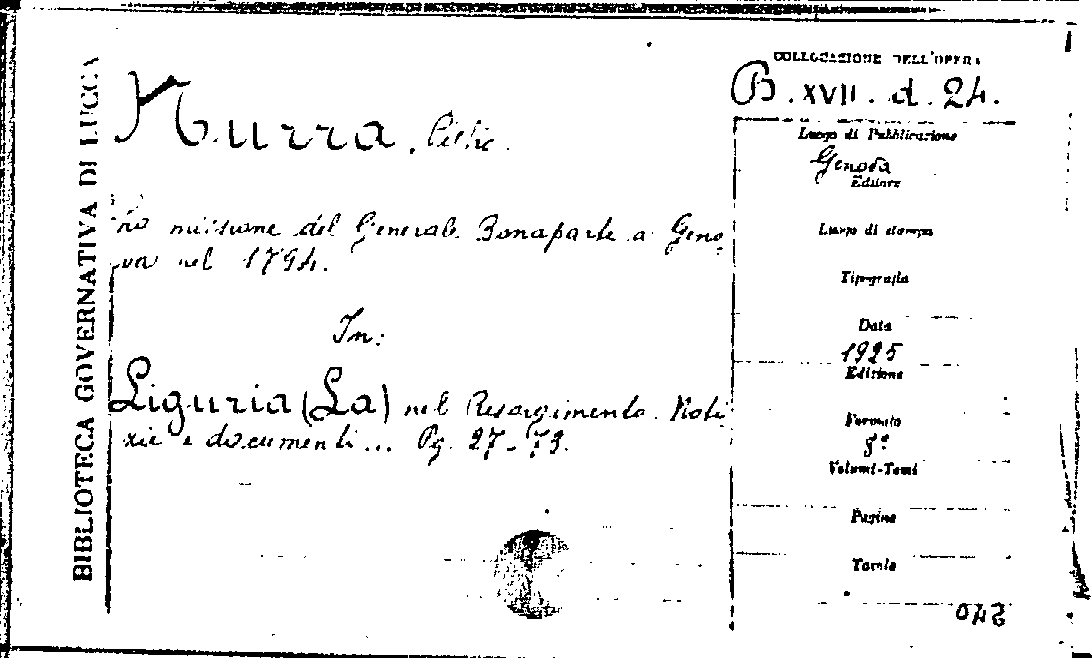 BIBLIOTECA GOVERNATIVA DI LUCCA
Nurra, Pietro.
La missione del Generale Bonaparte a Geno-
va nel 1794.
In:
Liguria (La) nel Risorgimento. Noti-
zie e documenti... Pg. 27-73.
COLLOCAZIONE DELL'OPERA
B. XVII. d. 24.
Luogo di Pubblicazione
Genova
Editore
Luogo di stampa
Tipografia
Data
1925
Edizione
Formato
8°
Volumi-Tomi
Pagine
Tavole